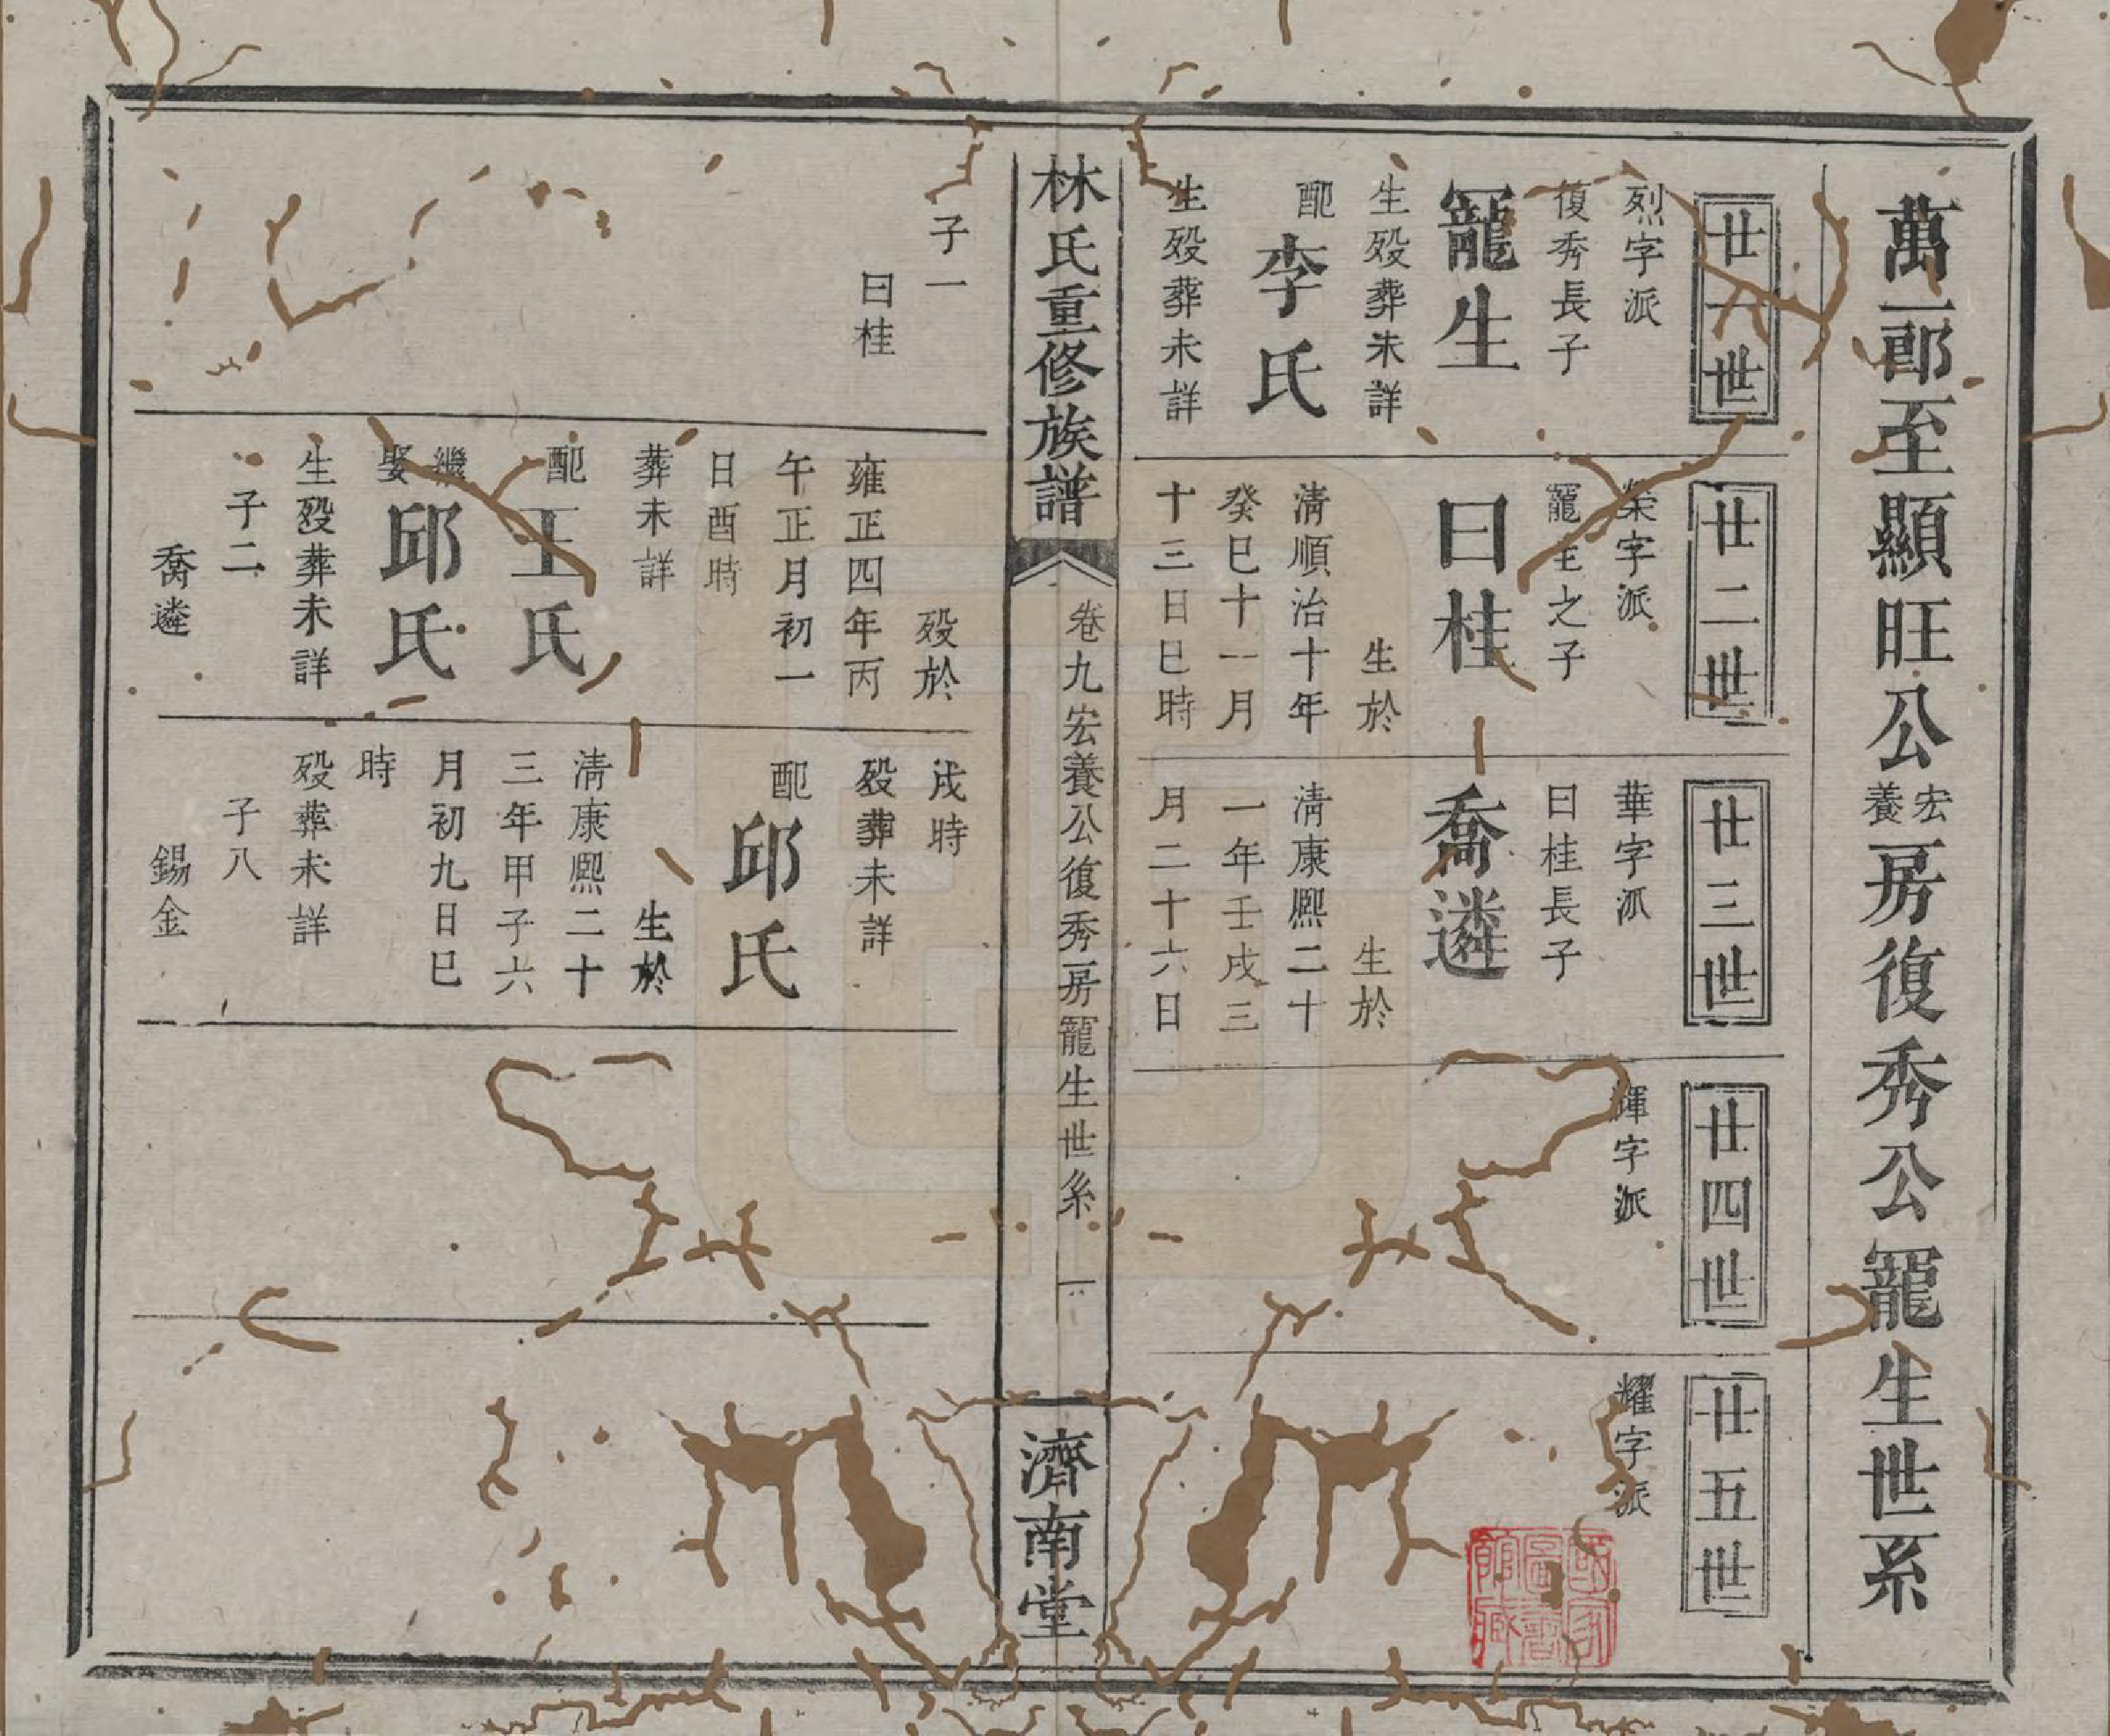 萬一郎至顯旺公宏養房復秀公寵生世系
廿一世
烈字派
復秀長子
寵生
生歿葬未詳
配
李氏
生歿葬未詳
廿二世
榮字派
寵生之子
曰桂
生於
清順治十年
癸巳十一月
十三日巳時
廿三世
華字派
曰桂長子
喬遴
生於
清康熙二十
一年壬戌三
月二十六日
廿四世
輝字派
廿五世
耀字派
國家
圖書
館藏
林氏重修族譜
卷九宏養公復秀房寵生世系
一
濟南堂
子一
曰桂
歿於
雍正四年丙
午正月初一
日酉時
葬未詳
配
王氏
繼娶
邱氏
生歿葬未詳
子二
喬遴
戌時
歿葬未詳
配
邱氏
生於
清康熙二十
三年甲子六
月初九日巳
時
歿葬未詳
子八
錫金